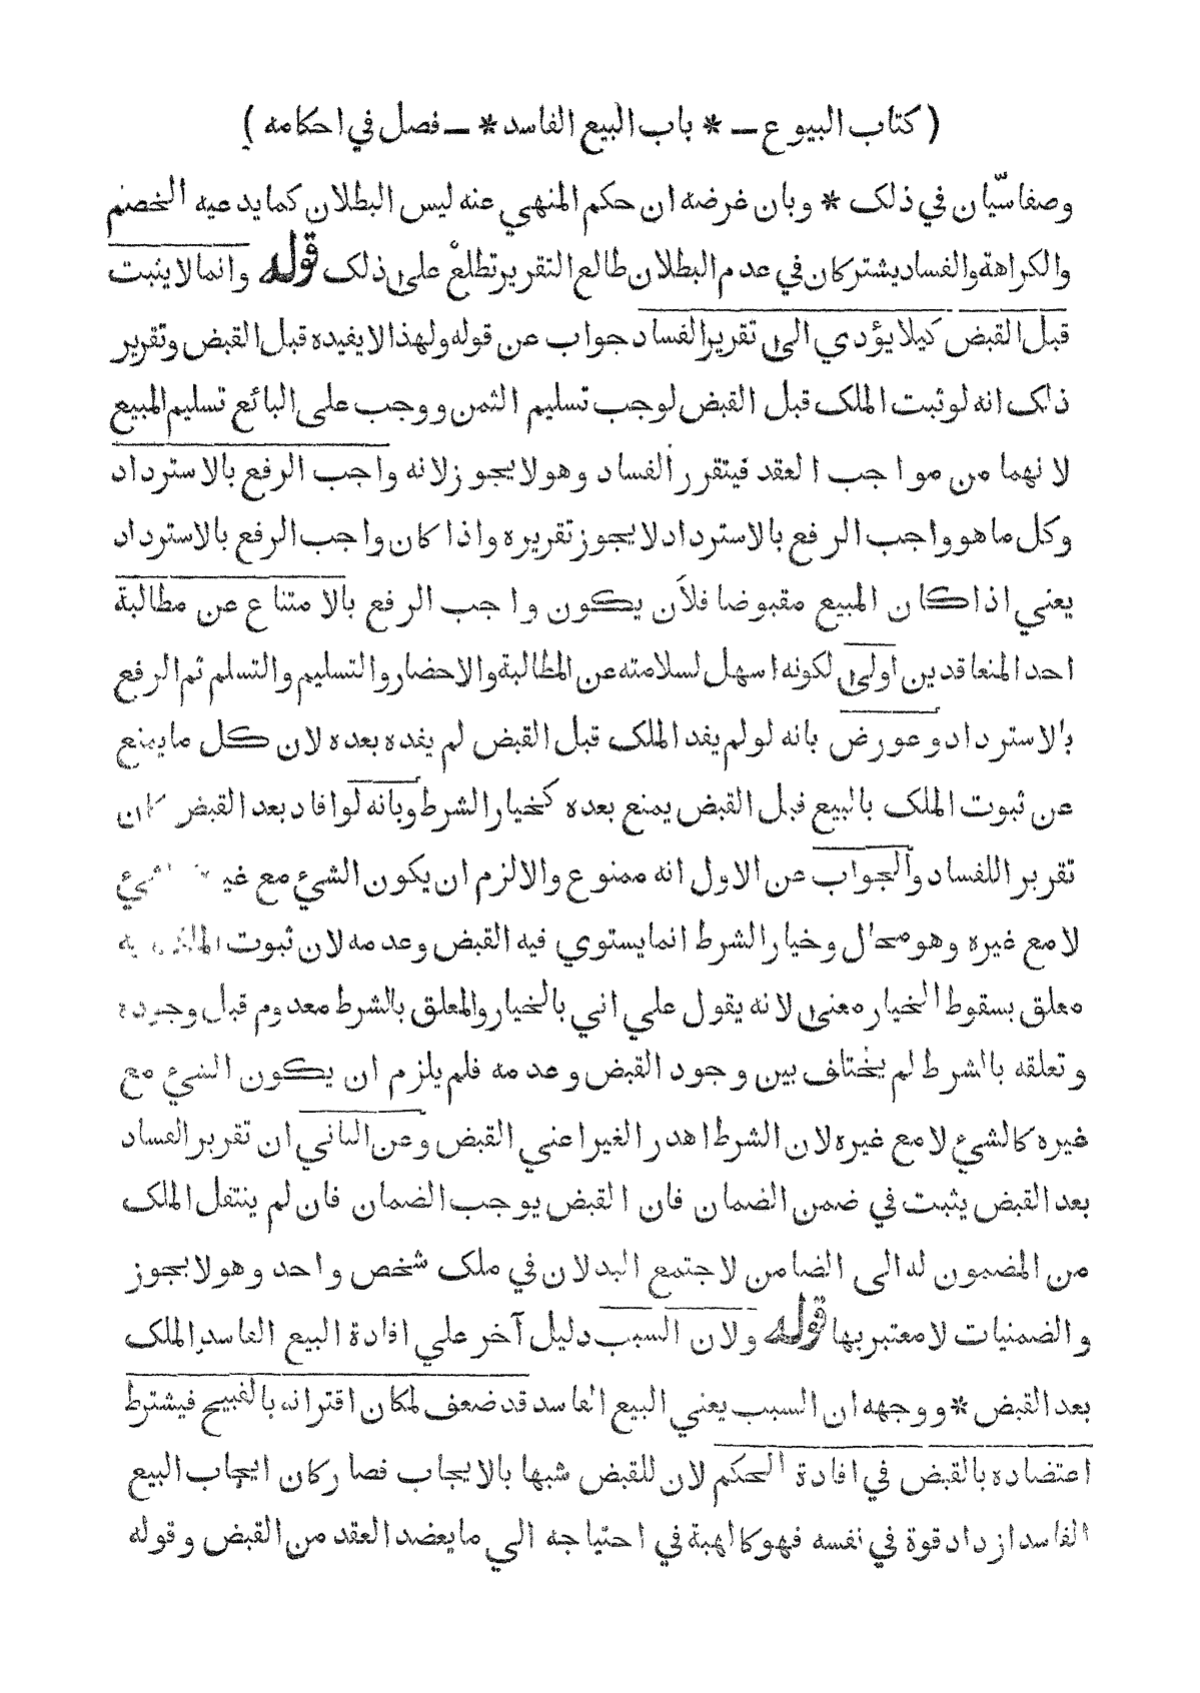 ( كتاب البيوع ــ * باب البيع الفاسد * ــ فصل في احكامه )
وصفا سيّان في ذلك * وبان غرضه ان حكم المنهي عنه ليس البطلان كما يدعيه الخصم
والكراهة والفساد يشتركان في عدم البطلان طالع التقرير تطلع على ذلك قوله وانما لا يثبت
قبل القبض كيلا يؤدي الى تقرير الفساد جواب عن قوله ولهذا لا يفيده قبل القبض وتقرير
ذلك انه لو ثبت الملك قبل القبض لوجب تسليم الثمن ووجب على البائع تسليم المبيع
لانهما من مواجب العقد فيتقرر الفساد وهو لا يجوز لانه واجب الرفع بالاسترداد
وكل ما هو واجب الرفع بالاسترداد لا يجوز تقريره واذا كان واجب الرفع بالاسترداد
يعني اذا كان المبيع مقبوضا فلأن يكون واجب الرفع بالامتناع عن مطالبة
احد المتعاقدين اولى لكونه اسهل لسلامته عن المطالبة والاحضار والتسليم والتسلم ثم الرفع
بالاسترداد وعورض بانه لو لم يفد الملك قبل القبض لم يفده بعده لان كل ما يمنع
عن ثبوت الملك بالبيع قبل القبض يمنع بعده كخيار الشرط وبانه لو افاد بعد القبض كان
تقريرا للفساد والجواب عن الاول انه ممنوع والا لزم ان يكون الشئ مع غيره كالشئ
لا مع غيره وهو محال وخيار الشرط انما يستوي فيه القبض وعدمه لان ثبوت الملك به
معلق بسقوط الخيار معنى لانه يقول علي اني بالخيار والمعلق بالشرط معدوم قبل وجوده
وتعلقه بالشرط لم يختلف بين وجود القبض وعدمه فلم يلزم ان يكون الشئ مع
غيره كالشئ لا مع غيره لان الشرط اهدر الغير اعني القبض وعن الثاني ان تقرير الفساد
بعد القبض يثبت في ضمن الضمان فان القبض يوجب الضمان فان لم ينتقل الملك
من المضمون له الى الضامن لاجتمع البدلان في ملك شخص واحد وهو لا يجوز
والضمنيات لا معتبر بها قوله ولان السبب دليل آخر علي افادة البيع الفاسد الملك
بعد القبض * ووجهه ان السبب يعني البيع الفاسد قد ضعف لمكان اقترانه بالقبيح فيشترط
اعتضاده بالقبض في افادة الحكم لان للقبض شبها بالايجاب فصار كان ايجاب البيع
الفاسد ازداد قوة في نفسه فهو كالهبة في احتياجه الي ما يعضد العقد من القبض وقوله